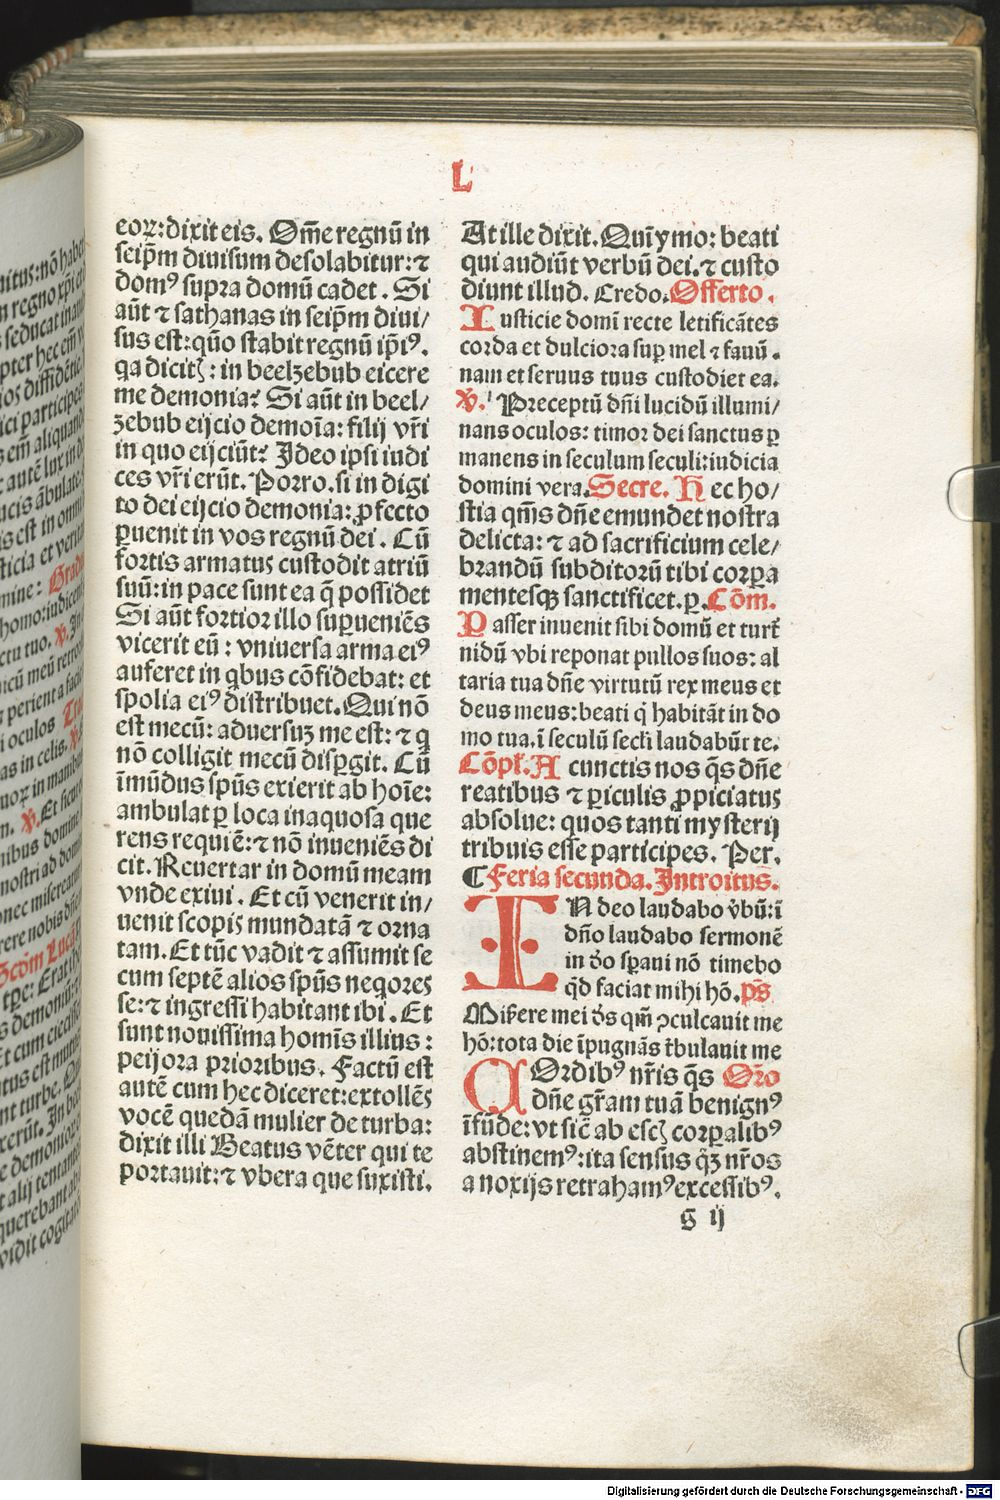 L
eoꝝ: dixit eis. Om̃e regnū in
seip̃m diuisum desolabitur: ⁊
domꝰ supra domū cadet. Si
aūt ⁊ sathanas in seip̃m diui/
sus est: quō stabit regnū ip̄iꝰ.
qa dicitꝭ: in beelzebub eicere
me demonia? Si aūt in beel/
zebub eijcio demoīa: filij vr̄i
in quo eijciūt? Ideo ipsi iudi
ces vr̄i erūt. Porro. si in digi
to dei eijcio demonia: ꝓfecto
ꝑuenit in vos regnū dei. Cū
fortis armatus custodit atriū
suū: in pace sunt ea q̄ possidet
Si aūt fortior illo suꝑueniēs
vicerit eū: vniuersa arma eiꝰ
auferet in qbus cōfidebat: et
spolia eiꝰ distribuet. Qui nō
est mecū: aduersuꝫ me est: ⁊ q
nō colligit mecū disꝑgit. Cū
īmūdus spūs exierit ab hoīe:
ambulat ꝑ loca inaquosa que
rens requiē: ⁊ nō inueniēs di
cit. Reuertar in domū meam
vnde exiui. Et cū venerit in/
uenit scopis mundatā ⁊ orna
tam. Et tūc vadit ⁊ assumit se
cum septē alios spūs neqores
se: ⁊ ingressi habitant ibi. Et
sunt nouissima homīs illius:
peijora prioribus. Factū est
autē cum hec diceret: extollēs
vocē quedā mulier de turba:
dixit illi Beatus vēter qui te
portauit: ⁊ vbera que suxisti.
At ille dixit. Quīymo: beati
qui audiūt verbū dei. ⁊ custo
diunt illud. Credo. Offerto.
Iusticie domī recte letificātes
corda et dulciora suꝑ mel ⁊ fauū.
nam et seruus tuus custodiet ea.
℣. Preceptū dn̄i lucidū illumi/
nans oculos: timor dei sanctus ꝑ
manens in seculum seculi: iudicia
domini vera. Secre. Hec ho/
stia qm̄s dn̄e emundet nostra
delicta: ⁊ ad sacrificium cele/
brandū subditorū tibi corꝑa
mentesqꝫ sanctificet. ꝑ. Cōm.
Passer inuenit sibi domū et turt̄
nidū vbi reponat pullos suos: al
taria tua dn̄e virtutū rex meus et
deus meus: beati q̇ habitāt in do
mo tua. ī seculū secłi laudabūt te.
Cōpł. A cunctis nos q̄s dn̄e
reatibus ⁊ ꝑiculis ꝓpiciatus
absolue: quos tanti mysterij
tribuis esse participes. Per.
¶ Feria secunda. Introitus.
IN deo laudabo v̄bū: ī
dn̄o laudabo sermonē
in d̄o sꝑaui nō timebo
qd̄ faciat mihi hō. ps
Mis̄ere mei d̄s qm̄ ꝯculcauit me
hō: tota die īpugnās t̄bulauit me
COrdibꝰ nr̄is q̄s Oro
dn̄e gr̄am tuā benignꝰ
īfūde: vt sic̄ ab escꝭ corꝑalibꝰ
abstinemꝰ: ita sensus qꝫ nr̄os
a noxijs retrahamꝰ excessibꝰ.
G ij
Digitalisierung gefördert durch die Deutsche Forschungsgemeinschaft - DFG